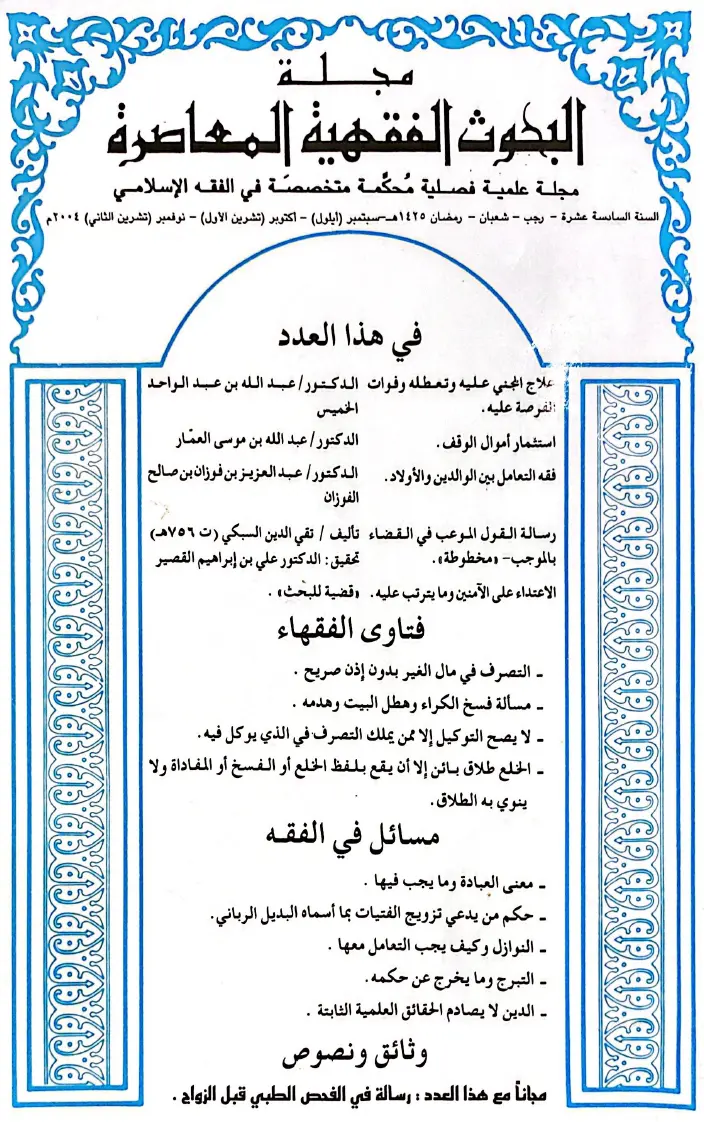 مجلة
البحوث الفقهية المعاصرة
مجلة علمية فصلية مُحكَّمة متخصصة في الفقه الإسلامي
السنة السادسة عشرة - رجب - شعبان - رمضان ١٤٢٥هـ-سبتمبر (أيلول) - اكتوبر (تشرين الأول) - نوفمبر (تشرين الثاني) ٢٠٠٤م
في هذا العدد
علاج المجني عليه وتعطله وفوات الدكتور/ عبد الله بن عبد الواحد
الفرصة عليه. الخميس
استثمار أموال الوقف. الدكتور/ عبد الله بن موسى العمّار
فقه التعامل بين الوالدين والأولاد. الدكتور/ عبد العزيز بن فوزان بن صالح
الفوزان
رسالة القول الموعب في القضاء تأليف / تقي الدين السبكي (ت ٧٥٦هـ)
بالموجب- «مخطوطة». تحقيق: الدكتور علي بن إبراهيم القصير
الاعتداء على الآمنين وما يترتب عليه. «قضية للبحث» .
فتاوى الفقهاء
- التصرف في مال الغير بدون إذن صريح .
- مسألة فسخ الكراء وهطل البيت وهدمه .
- لا يصح التوكيل إلا ممن يملك التصرف في الذي يوكل فيه.
- الخلع طلاق بائن إلا أن يقع بلفظ الخلع أو الفسخ أو المفاداة ولا
ينوي به الطلاق.
مسائل في الفقه
- معنى العبادة وما يجب فيها .
- حكم من يدعي تزويج الفتيات بما أسماه البديل الرباني.
- النوازل وكيف يجب التعامل معها .
- التبرج وما يخرج عن حكمه.
- الدين لا يصادم الحقائق العلمية الثابتة .
وثائق ونصوص
مجاناً مع هذا العدد : رسالة في الفحص الطبي قبل الزواج .